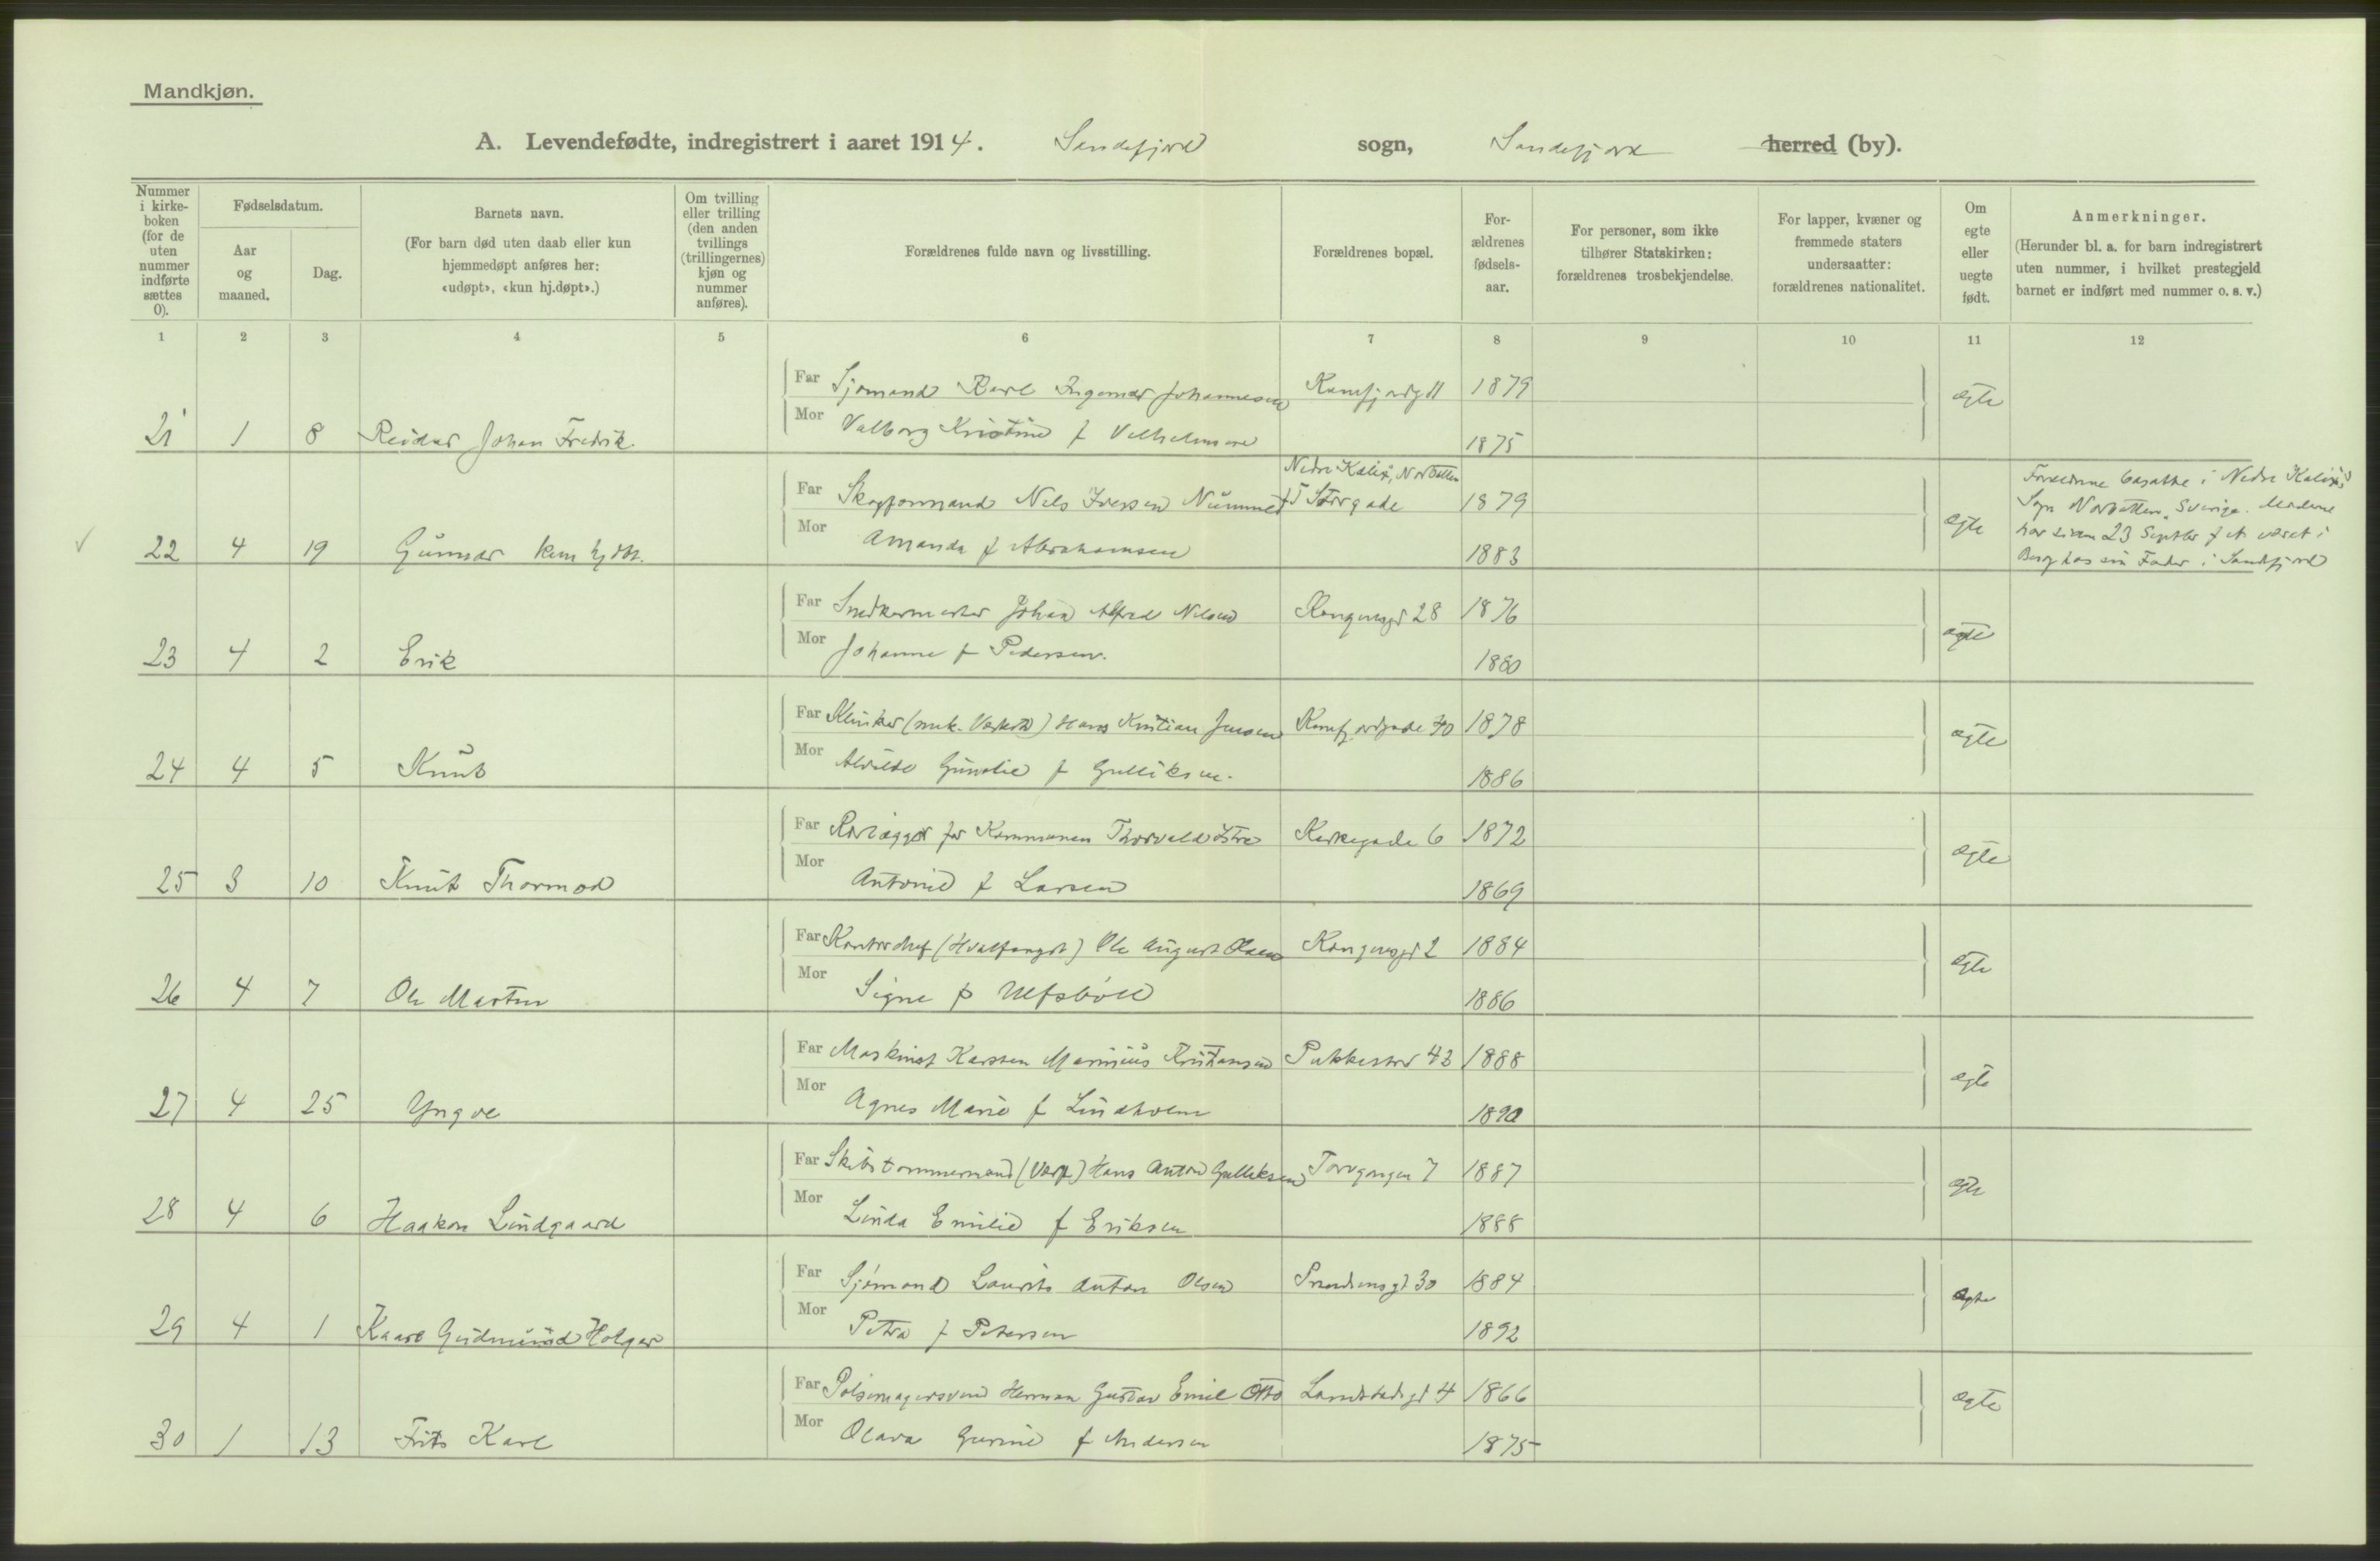 Mandkjøn.
A. Levendefødte, indregistrert i aaret 1914. Sandefjord sogn, Sandefjord herred (by).
Nummer i kirke-boken (for de uten nummer indførte sættes 0).
Fødselsdatum.
Aar og maaned.
Dag.
Barnets navn.
(For barn død uten daab eller kun hjemmedøpt anføres her: «udøpt», «kun hj.døpt».)
Om tvilling eller trilling (den anden tvillings (trillingernes) kjøn og nummer anføres).
Forældrenes fulde navn og livsstilling.
Forældrenes bopæl.
For-ældrenes fødsels-aar.
For personer, som ikke tilhører Statskirken: forældrenes trosbekjendelse.
For lapper, kvæner og fremmede staters undersaatter: forældrenes nationalitet.
Om egte eller uegte født.
Anmerkninger.
(Herunder bl. a. for barn indregistrert uten nummer, i hvilket prestegjeld barnet er indført med nummer o. s. v.)
1 2 3 4 5 6 7 8 9 10 11 12
Far Sjømand Karl Ingemar Johannesen 1879 egte
21 1 8 Reidar Johan Fredrik
Mor Valborg Kristine f Vilhelmsen 1875
Nedre Kalix, Norbotten
Far Skogformand Nils Iversen Nummed Storgade 1879 egte
22 4 19 Gunnar kun hj dbt.
Mor Amanda f Abrahamsen 1883
Forældrene bosatte i Nedre Kalix
Sogn Norbotten, Sverige. Moderen
har siden 23 Septbr f A været i
Besøg hos sin Fader i Sandefjord
Far Snedkermester Johan Alfred Nilsen Kongensgd 28 1876 egte
23 4 2 Erik
Mor Johanne f Pedersen. 1880
Far Klinker (mek. Værksted) Hans Kristian Jensen 40 1878 egte
24 4 5 Knut
Mor Alvilde f Gulliksen. 1886
Far Rørlægger for Kommunen Thorvald Kirkegade 6 1872 egte
25 3 10 Knut Thormod
Mor Antonie f Larsen 1869
Far Kontorchef (Hvalfangst) Ole August Olsen Kongensgd 2 1884 egte
26 4 7 Ole Martin
Mor Signe f 1886
Far Maskinist Karsten Marinius Kristiansen Pukkestad 43 1888 egte
27 4 25 Yngve
Mor Agnes Marie f Lindholm 1890
Far Skibstømmermand (Værft) Hans Anton Gulliksen 7 1887 egte
28 4 6 Haakon Lindgaard
Mor Linda Emilie f Eriksen 1888
Far Sjømand Laurits Anton Olsen 30 1884 egte
29 4 1 Kaare Gudmund Holger
Mor Petra f Petersen 1892
Far Pølsemagersvend Herman Gustav Emil Otto Landstadsgt 4 1866 egte
30 1 13 Frits Karl
Mor Olava Gurine f Andersen 1875